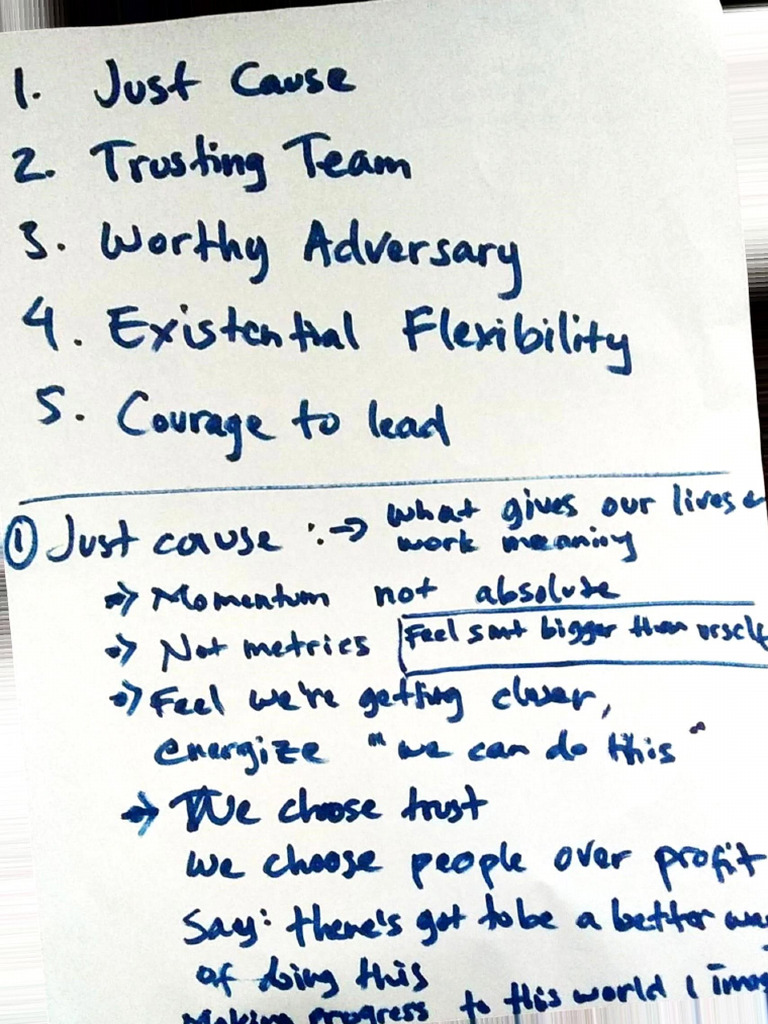 1. Just Cause
2. Trusting Team
3. Worthy Adversary
4. Existential Flexibility
5. Courage to lead
① Just cause :→ what gives our lives &
work meaning
→ Momentum not absolute
→ Not metrics Feel smt bigger than urself
→ Feel we're getting closer,
energize "we can do this"
→ We choose trust
we choose people over profit
Say: there's got to be a better
of doing this
Making progress to this world I